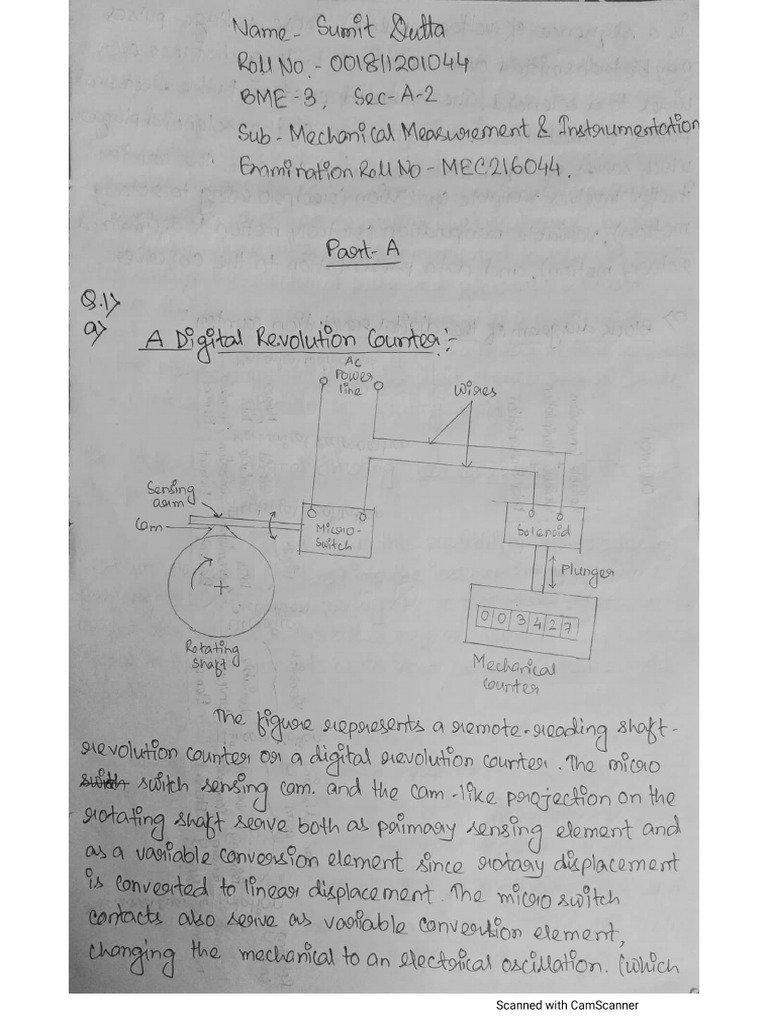 Name- Sumit Dutta
Roll No.- 001811201044
BME-3, Sec-A-2
Sub- Mechanical Measurement & Instrumentation
Exmination Roll No - MEC216044.
Part-A
Q.1>
a> A Digital Revolution Counter:-
AC
Power
line
Wires
Sensing
arm
Cam
Micro-
Switch
Solenoid
Plunger
003427
Rotating
shaft
Mechanical
counter
The figure represents a remote-reading shaft-
revolution counter or a digital revolution counter. The micro
switch sensing cam. and the cam-like projection on the
rotating shaft serve both as primary sensing element and
as a variable conversion element since rotary displacement
is converted to linear displacement. The micro switch
contacts also serve as variable conversion element,
changing the mechanical to an electrical oscillation. (which
Scanned with CamScanner